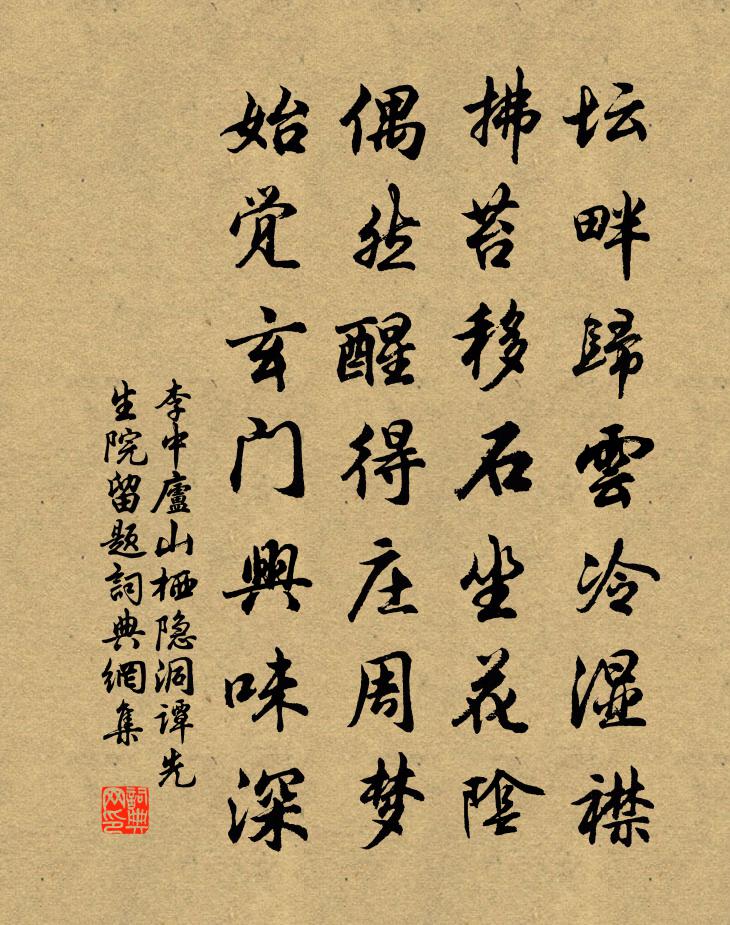 坛畔歸雲冷湿襟
拂苔移石坐花陰
偶然醒得庄周梦
始觉玄门興味深
李中廬山栖隐洞谭先
生院留题詞典網集
詞典网印